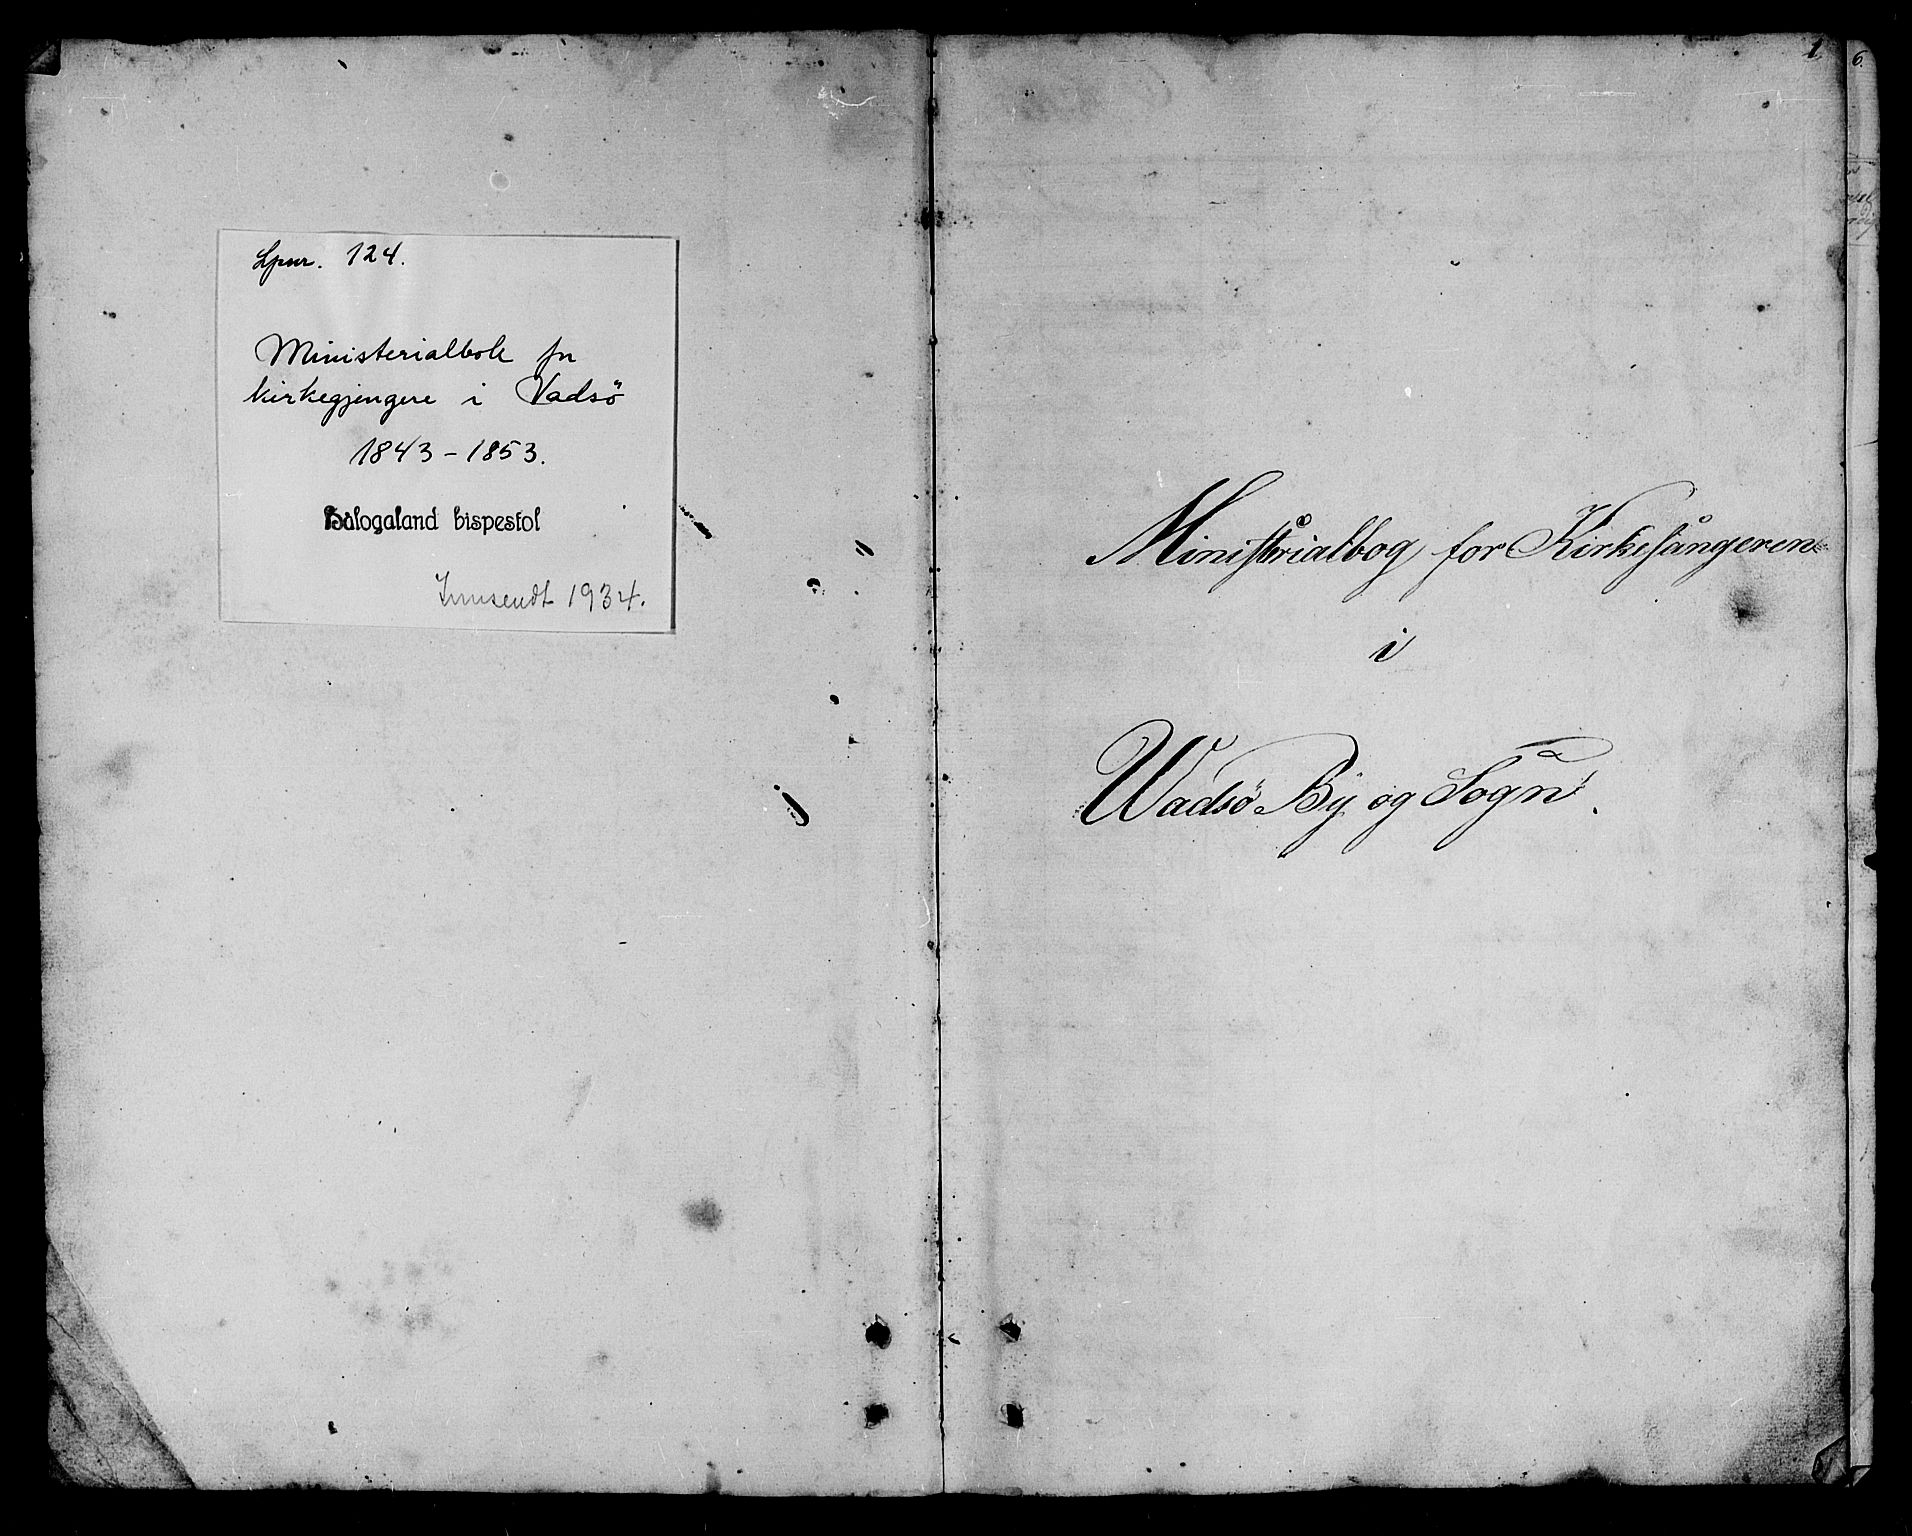 Lpnr. 124.
Ministerialbok for
kirkegjengere i Vadsö
1843-1853.
Hålogaland bispestol
Innsendt 1934.
1.
6.
Ministerialbog for Kirkesångeren
i
Wadsö By og Sogn.